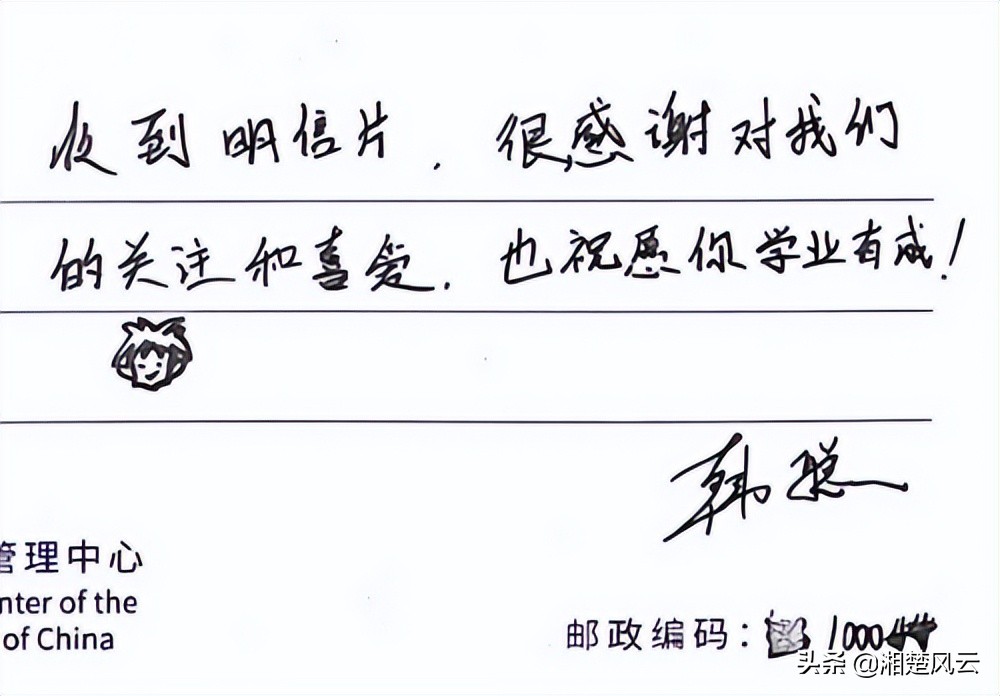 收到明信片，很感谢对我们
的关注和喜爱，也祝愿你学业有成！
韩聪
管理中心
nter of the
of China
邮政编码：1000
头条 @湘楚风云